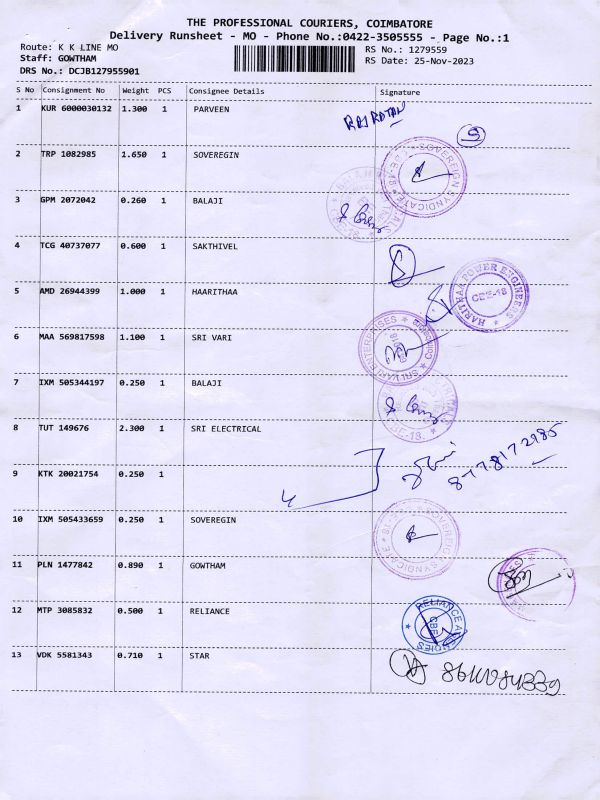 THE PROFESSIONAL COURIERS, COIMBATORE
Delivery Runsheet - MO - Phone No.:0422-3505555 - Page No.:1
Route: K K LINE MO
Staff: GOWTHAM
DRS No.: DCJB127955901
RS No.: 1279559
RS Date: 25-Nov-2023
S No Consignment No Weight PCS Consignee Details Signature
1 KUR 6000030132 1.300 1 PARVEEN
2 TRP 1082985 1.650 1 SOVEREGIN
SOVEREIGN SYNDICATE
3 GPM 2072042 0.260 1 BALAJI
4 TCG 40737077 0.600 1 SAKTHIVEL
5 AMD 26944399 1.000 1 HAARITHAA
HARITHAA POWER ENGINEERS
CBE-18
6 MAA 569817598 1.100 1 SRI VARI
SRI VARI ENTERPRISES
7 IXM 505344197 0.250 1 BALAJI
8 TUT 149676 2.300 1 SRI ELECTRICAL
8778172985
9 KTK 20021754 0.250 1
10 IXM 505433659 0.250 1 SOVEREGIN
SOVEREIGN SYNDICATE
11 PLN 1477842 0.890 1 GOWTHAM
12 MTP 3085832 0.500 1 RELIANCE
RELIANCE AGENCIES
13 VDK 5581343 0.710 1 STAR